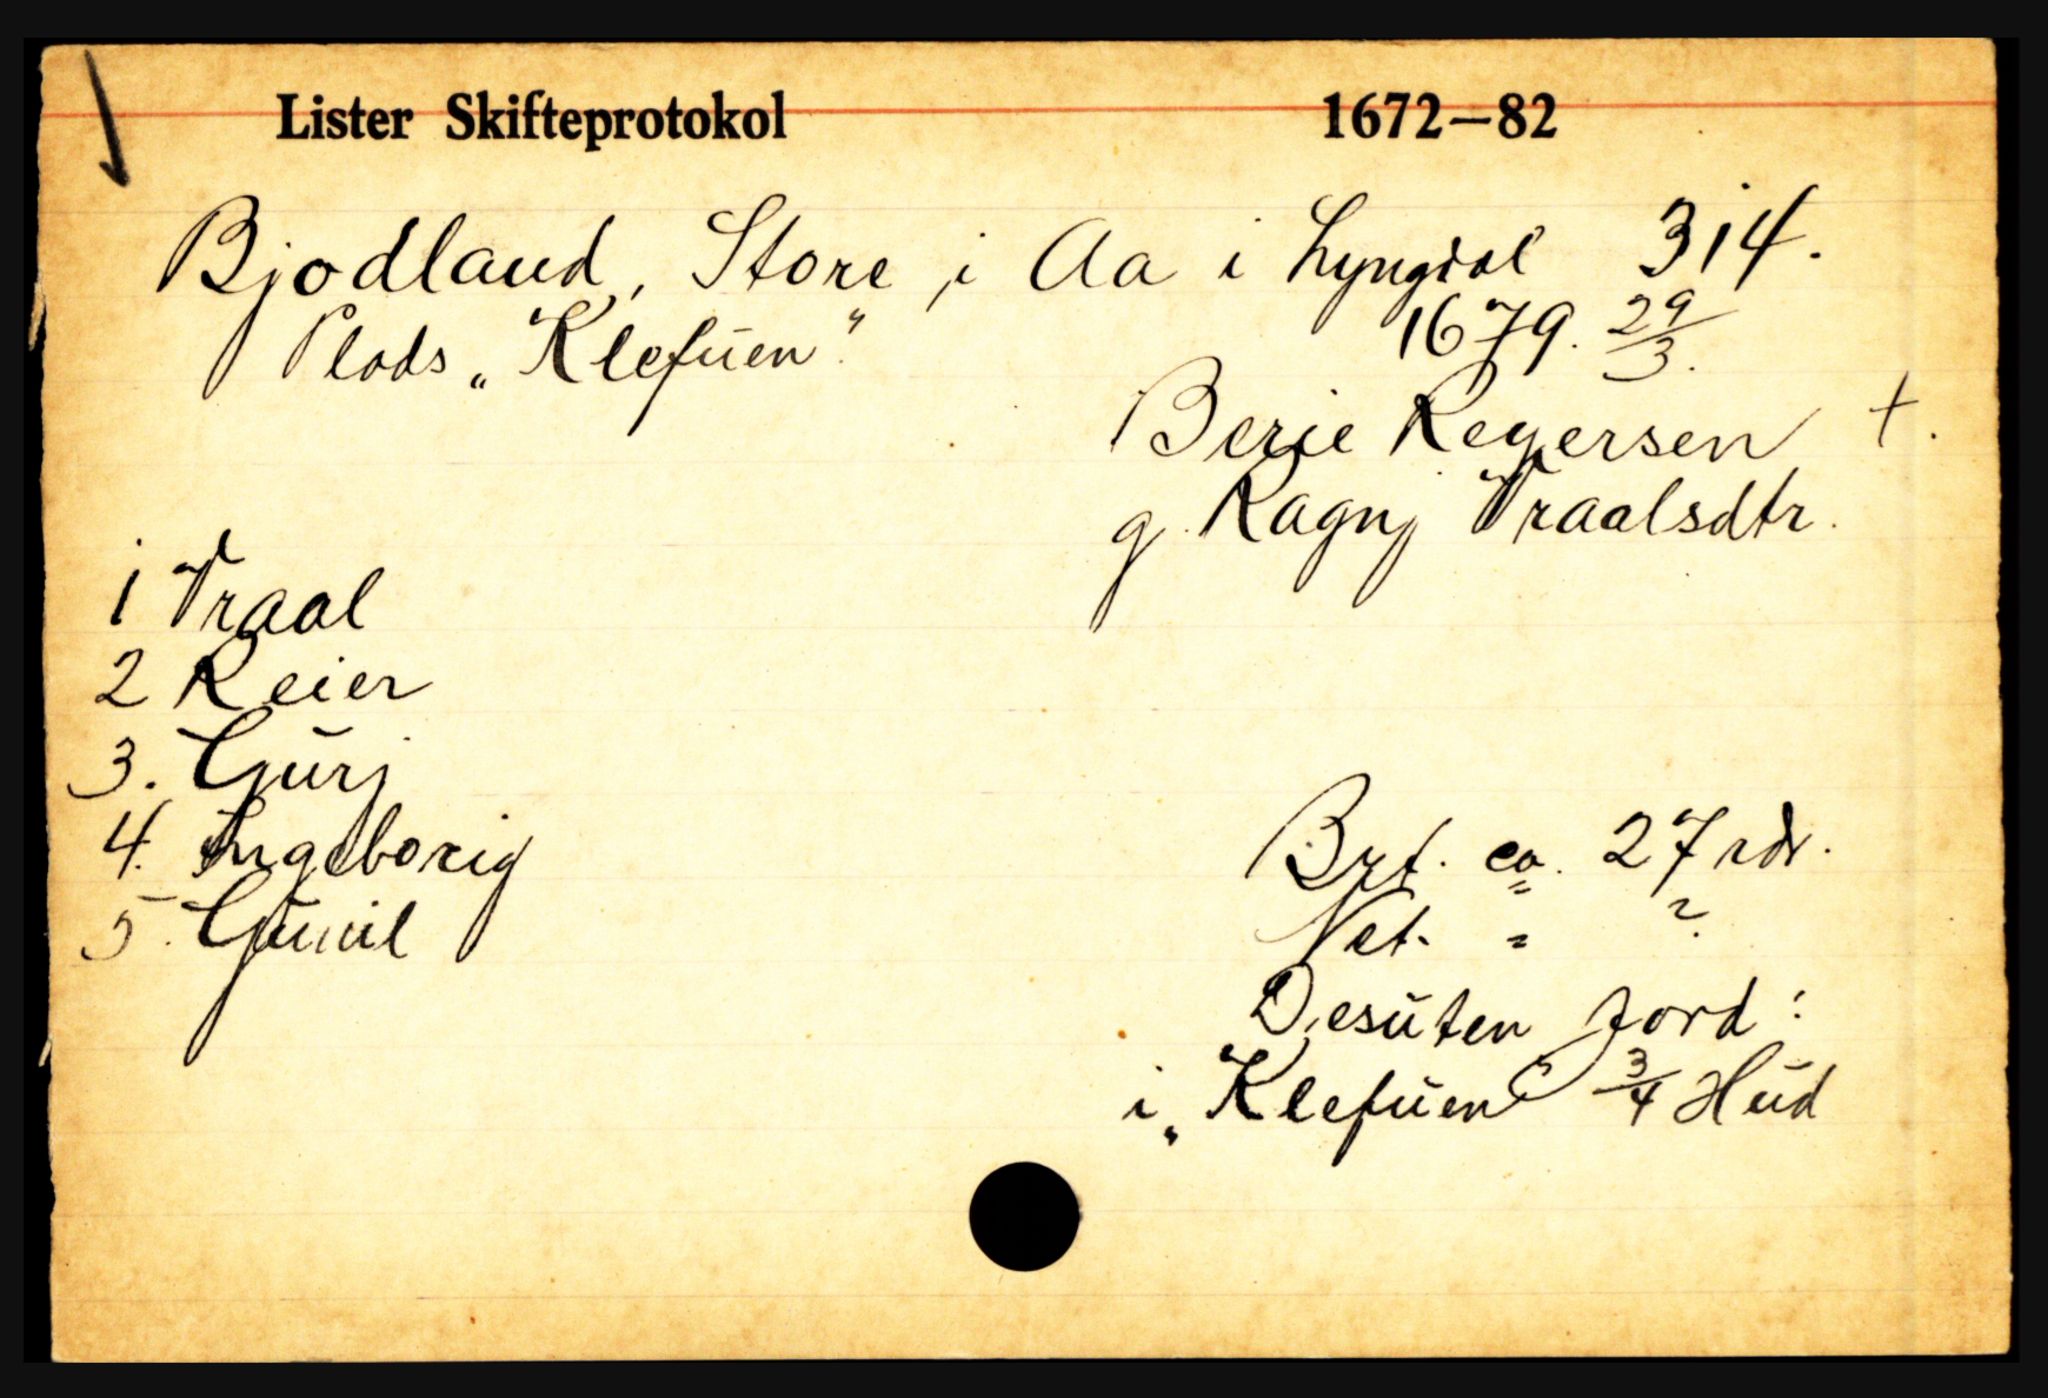 Lister Skifteprotokol 1672—82
Bjodland, Store, i Aa i Lyngdal 314.
Plads „Klefuen". 1679. 29/3.
Berie Regersen +.
g. Ragnj Traalsdtr.
1 Traal
2 Reier
3. Gurj
4. Ingeborig
5. Gunil
Brt. ca. 27 rdr.
Net. " ?
Desuten Jord:
i „Klefuen" 3/4 Hud